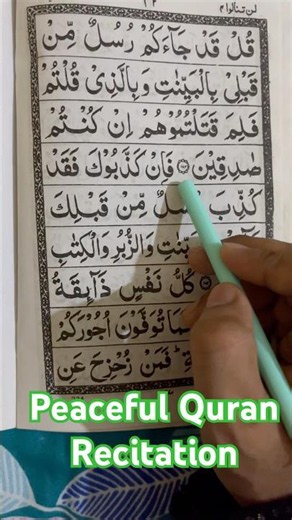 لن تنالوا ۴
قُلْ قَدْ جَآءَكُمْ رُسُلٌ مِّنْ
قَبْلِىْ بِالْبَيِّنٰتِ وَبِالَّذِىْ قُلْتُمْ
فَلِمَ قَتَلْتُمُوْهُمْ اِنْ كُنْتُمْ
صٰدِقِيْنَ فَاِنْ كَذَّبُوْكَ فَقَدْ
كُذِّبَ مِّنْ قَبْلِكَ
وَالزُّبُرِ وَالْكِتٰبِ
كُلُّ نَفْسٍ ذَآئِقَةُ
تُوَفَّوْنَ اُجُوْرَكُمْ
فَمَنْ زُحْزِحَ عَنِ
Peaceful Quran
Recitation